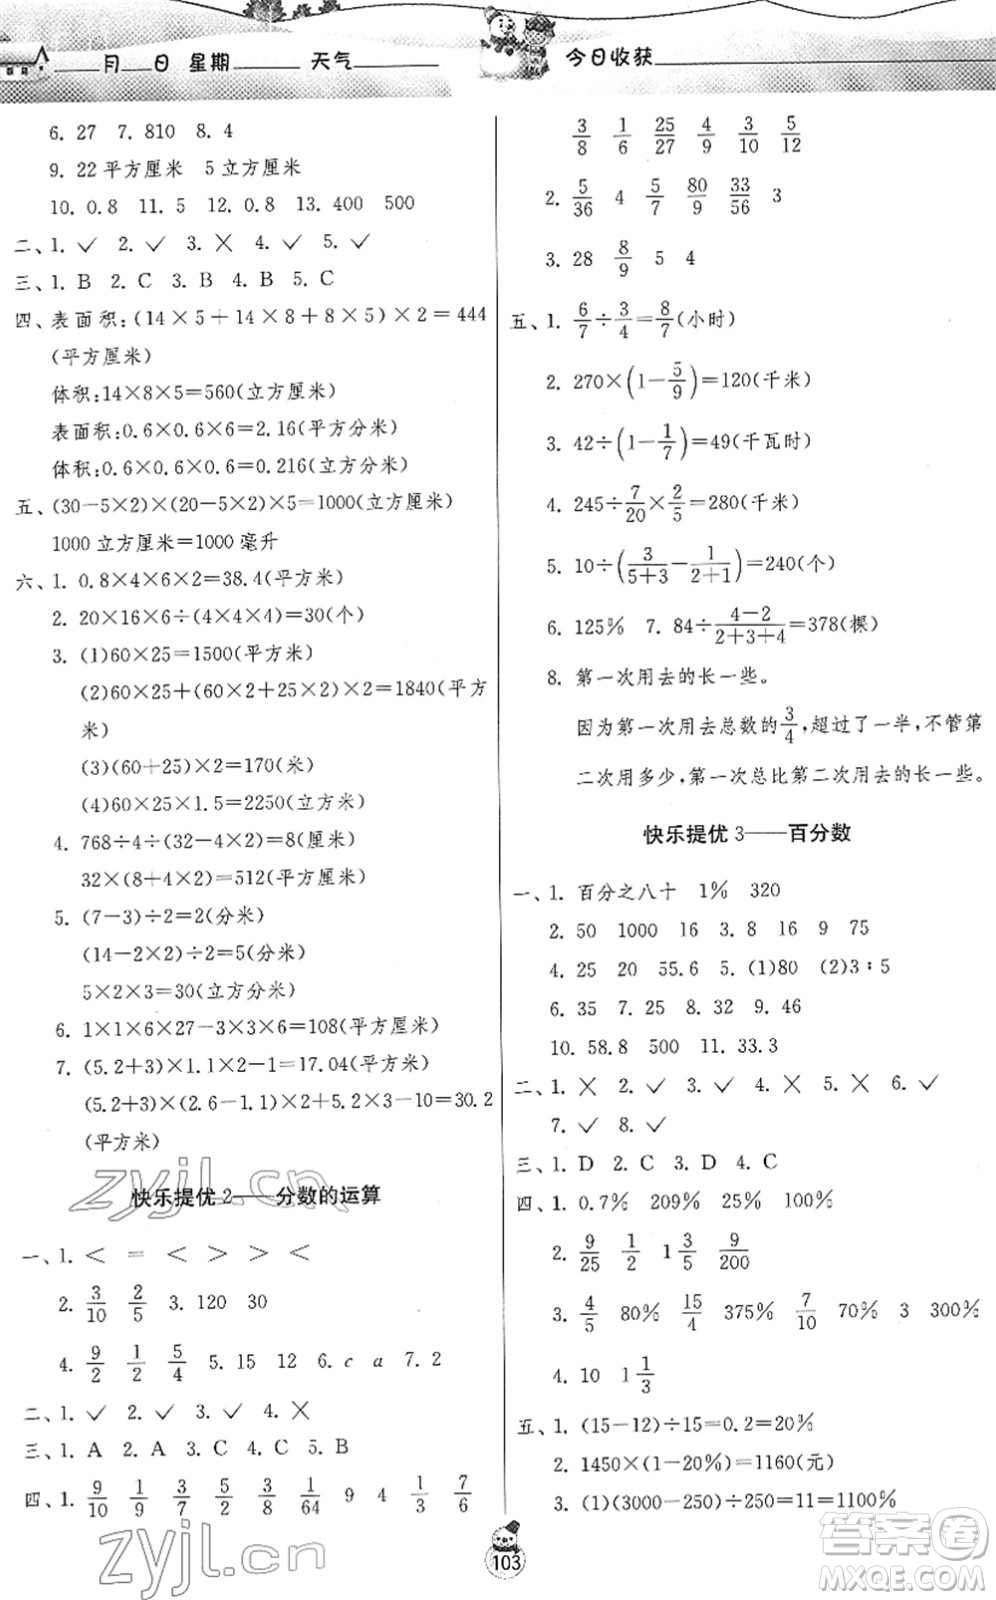 月 日 星期 天气 今日收获
6. 27 7. 810 8. 4
9. 22平方厘米 5立方厘米
10. 0.8 11. 5 12. 0.8 13. 400 500
二、1. ✓ 2. ✓ 3. ✕ 4. ✓ 5. ✓
三、1. B 2. C 3. B 4. B 5. C
四、表面积:(14×5+14×8+8×5)×2=444
(平方厘米)
体积:14×8×5=560(立方厘米)
表面积:0.6×0.6×6=2.16(平方分米)
体积:0.6×0.6×0.6=0.216(立方分米)
五、(30-5×2)×(20-5×2)×5=1000(立方厘米)
1000立方厘米=1000毫升
六、1. 0.8×4×6×2=38.4(平方米)
2. 20×16×6÷(4×4×4)=30(个)
3. (1)60×25=1500(平方米)
(2)60×25+(60×2+25×2)×2=1840(平方
米)
(3)(60+25)×2=170(米)
(4)60×25×1.5=2250(立方米)
4. 768÷4÷(32-4×2)=8(厘米)
32×(8+4×2)=512(平方厘米)
5. (7-3)÷2=2(分米)
(14-2×2)÷2=5(分米)
5×2×3=30(立方分米)
6. 1×1×6×27-3×3×6=108(平方厘米)
7. (5.2+3)×1.1×2-1=17.04(平方米)
(5.2+3)×(2.6-1.1)×2+5.2×3-10=30.2
(平方米)
zyjl.cn
快乐提优2——分数的运算
一、1. < = < > > <
2. 3/10 2/5 3. 120 30
4. 9/2 1/2 5/4 5. 15 12 6. c a 7. 2
二、1. ✓ 2. ✓ 3. ✓ 4. ✕
三、1. A 2. A 3. C 4. C 5. B
四、1. 9/10 1/9 3/7 5/2 3/8 1/64 9 4 1/3 7/6
zyjl.cn
3/8 1/6 25/27 4/9 3/10 5/12
2. 5/36 4 5/7 80/9 33/56 3
3. 28 8/9 5 4
五、1. 6/7÷3/4=8/7(小时)
2. 270×(1-5/9)=120(千米)
3. 42÷(1-1/7)=49(千瓦时)
4. 245÷7/20×2/5=280(千米)
5. 10÷(3/(5+3)-1/(2+1))=240(个)
6. 125% 7. 84÷(4-2)/(2+3+4)=378(棵)
8. 第一次用去的长一些。
因为第一次用去总数的3/4,超过了一半,不管第
二次用多少,第一次总比第二次用去的长一些。
快乐提优3——百分数
一、1. 百分之八十 1% 320
2. 50 1000 16 3. 8 16 9 75
4. 25 20 55.6 5. (1)80 (2)3∶5
6. 35 7. 25 8. 32 9. 46
10. 58.8 500 11. 33.3
二、1. ✕ 2. ✓ 3. ✓ 4. ✕ 5. ✕ 6. ✓
7. ✓ 8. ✓
三、1. D 2. C 3. D 4. C
四、1. 0.7% 209% 25% 100%
2. 9/25 1/2 1 3/5 9/200
3. 4/5 80% 15/4 375% 7/10 70% 3 300%
4. 10 1 1/3
五、1. (15-12)÷15=0.2=20%
2. 1450×(1-20%)=1160(元)
3. (1)(3000-250)÷250=11=1100%
103
答案圈
MXQE.COM